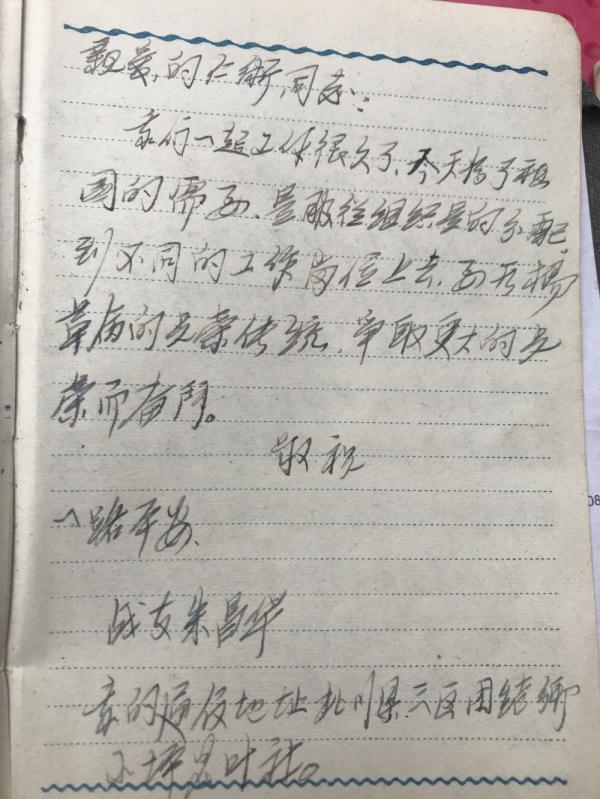 亲爱的仁术同志：
我们一起工作很久了、今天为了祖
国的需要、是服从组织的分配、
到不同的工作岗位上去、要
的光荣传统、争取更大的光
荣而奋鬥。
敬祝
一路平安、
战友朱昌华
我的通信地址北川县三区团结乡